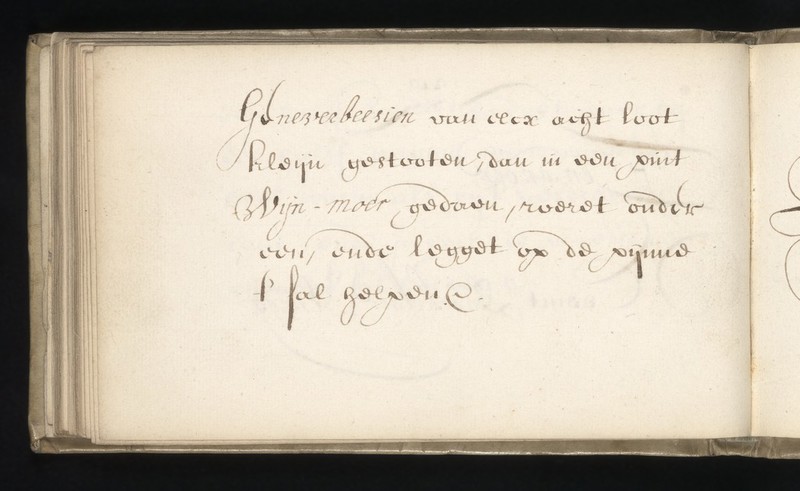 Geneverbeesien van eecx acht loot
kleijn gestooten, dan in een pint
Wijn-moer gedaen, roeret onder
een, ende legget op de pijnne
t' sal helpen